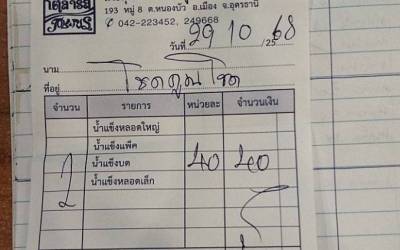 193 หมู่ 8 ต.หนองบัว อ.เมือง จ.อุดรธานี
042-223452, 249668
วันที่ 29 / 10 / 25 68
นาม โชคคูณโชค
ที่อยู่
จำนวน รายการ หน่วยละ จำนวนเงิน
น้ำแข็งหลอดใหญ่
น้ำแข็งแพ็ค
น้ำแข็งบด 40 40
น้ำแข็งหลอดเล็ก